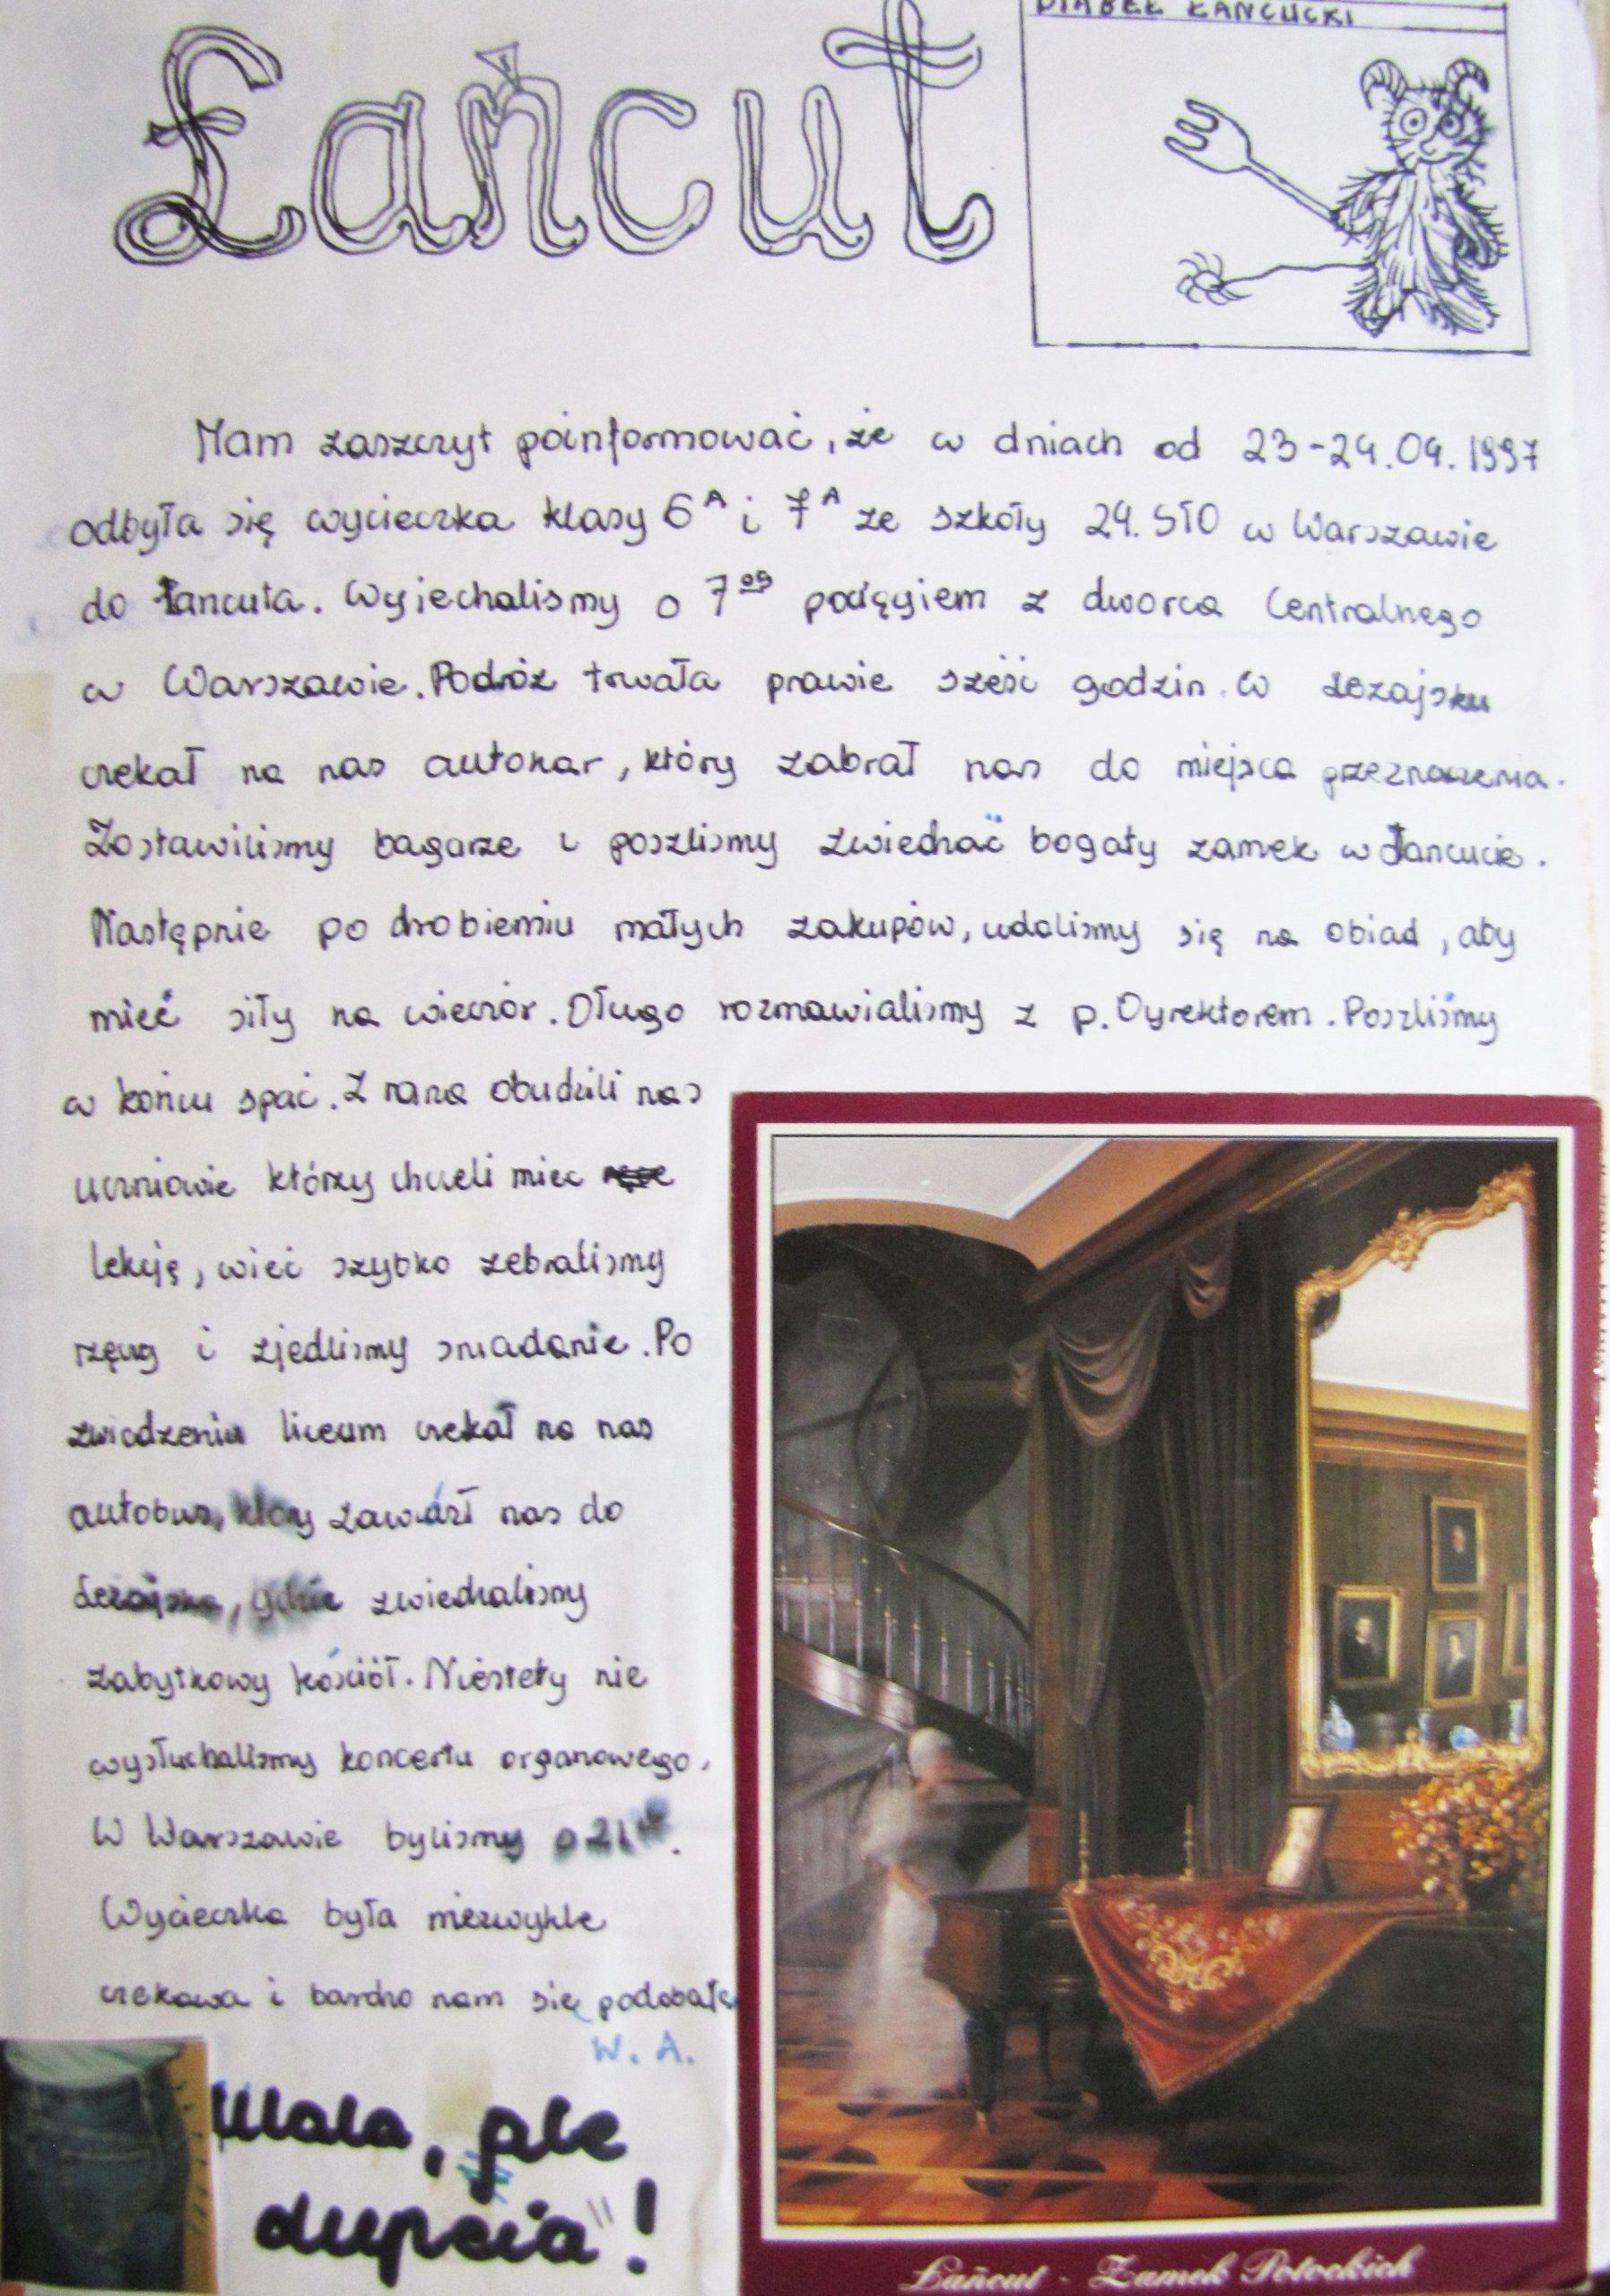 Łańcut
DIABEŁ ŁAŃCUCKI
Mam zaszczyt poinformować, że w dniach od 23-24.04.1997
odbyła się wycieczka klasy 6A i 7A ze szkoły 24. STO w Warszawie
do Łancuta. Wyjechalismy o 7 pociągiem z dworca Centralnego
w Warszawie. Podróż trwała prawie sześć godzin. W Leżajsku
czekał na nas autokar, który zabrał nas do miejsca przeznaczenia.
Zostawiliśmy bagarze i poszliśmy zwiedzać bogaty zamek w Łancucie.
Następnie po drobieniu małych zakupów, udaliśmy się na obiad, aby
mieć siły na wieczór. Długo rozmawialiśmy z p. Dyrektorem. Poszliśmy
w końcu spać. Z rana obudzili nas
uczniowie którzy chcieli miec
lekcję, wieć szybko zebraliśmy
rzęczy i zjedliśmy sniadanie. Po
zwiedzeniu liceum czekał na nas
autobus, który zawiózł nas do
Leżajska, gdzie zwiedzaliśmy
zabytkowy kościół. Niestety nie
wysłuchaliśmy koncertu organowego.
W Warszawie byliśmy o 21.
Wycieczka była niezwykle
ciekawa i bardzo nam się podobała
W. A.
Mała, ale
dupcia"!
Łańcut - Zamek Potockich